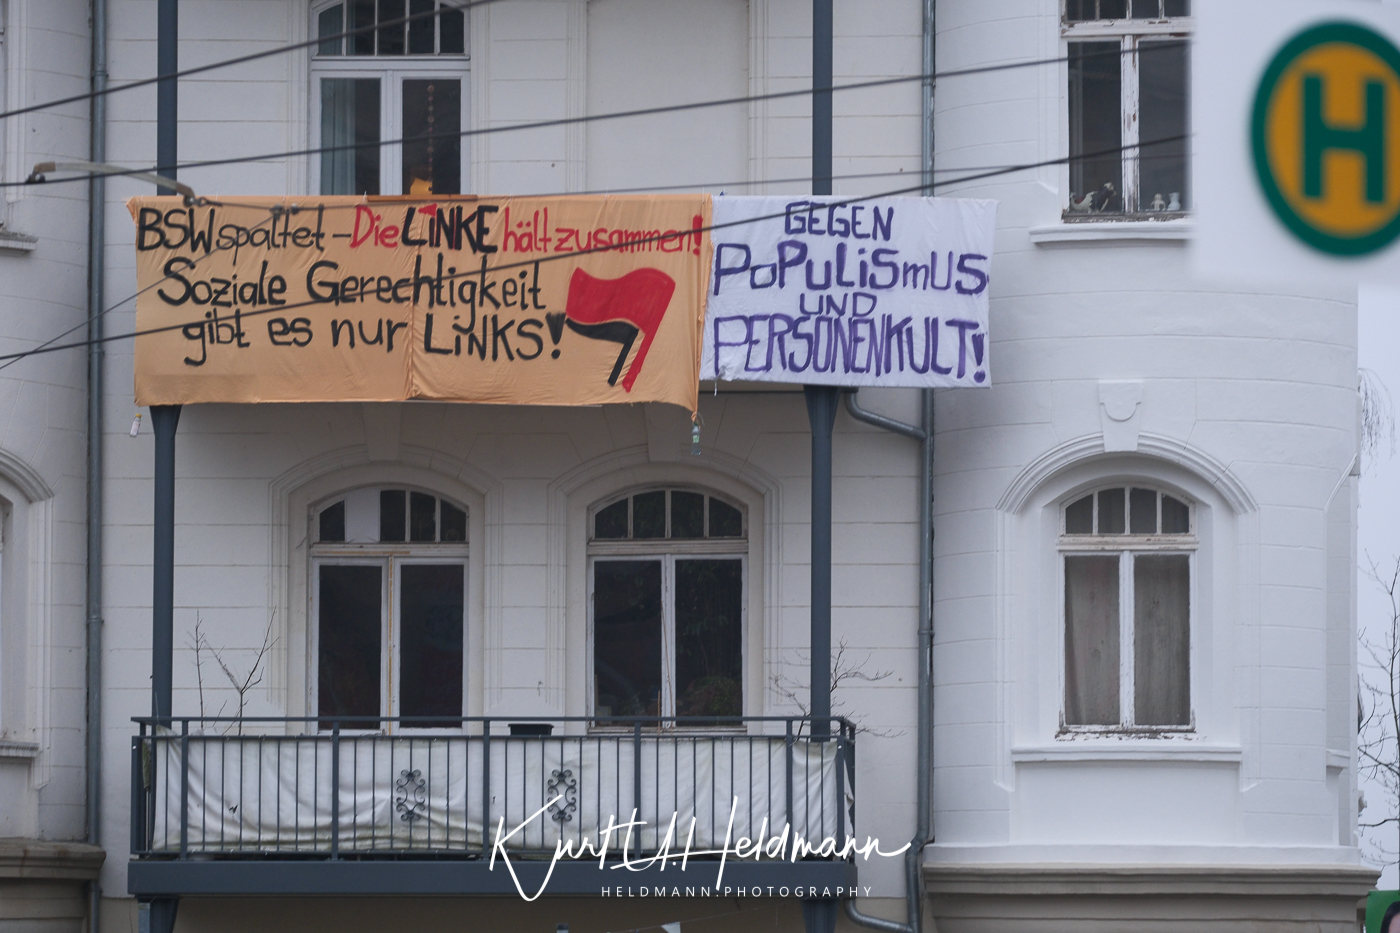 BSW spaltet – Die LiNKE hält zusammen!
Soziale Gerechtigkeit
gibt es nur LiNKS!
GEGEN
PoPULiSmUS
UND
PERSONENKULT!
H
Kurt U. Heldmann
HELDMANN.PHOTOGRAPHY